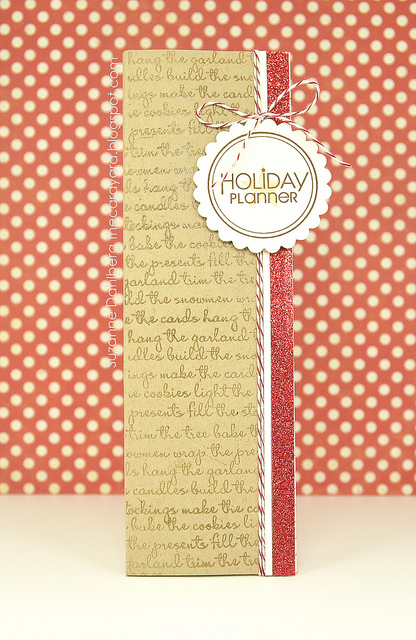 hang the garland
dles build the sno
ings make the card
e cookies light th
presents fill
trim the tre
owmen wra
ls hang th
candles
tockings ma
bake the cook
the presents fill the
garland trim the tre
ild the snowmen wr
e the cards hang th
hang the garland
dles build the sno
ings make the card
e cookies light the
presents fill the sto
trim the tree bake th
owmen wrap the pre
ls hang the garlan
candles build the
tockings make the ca
bake the cookies li
the presents fill the
garland trim the tre
HOLIDAY
PLANNER